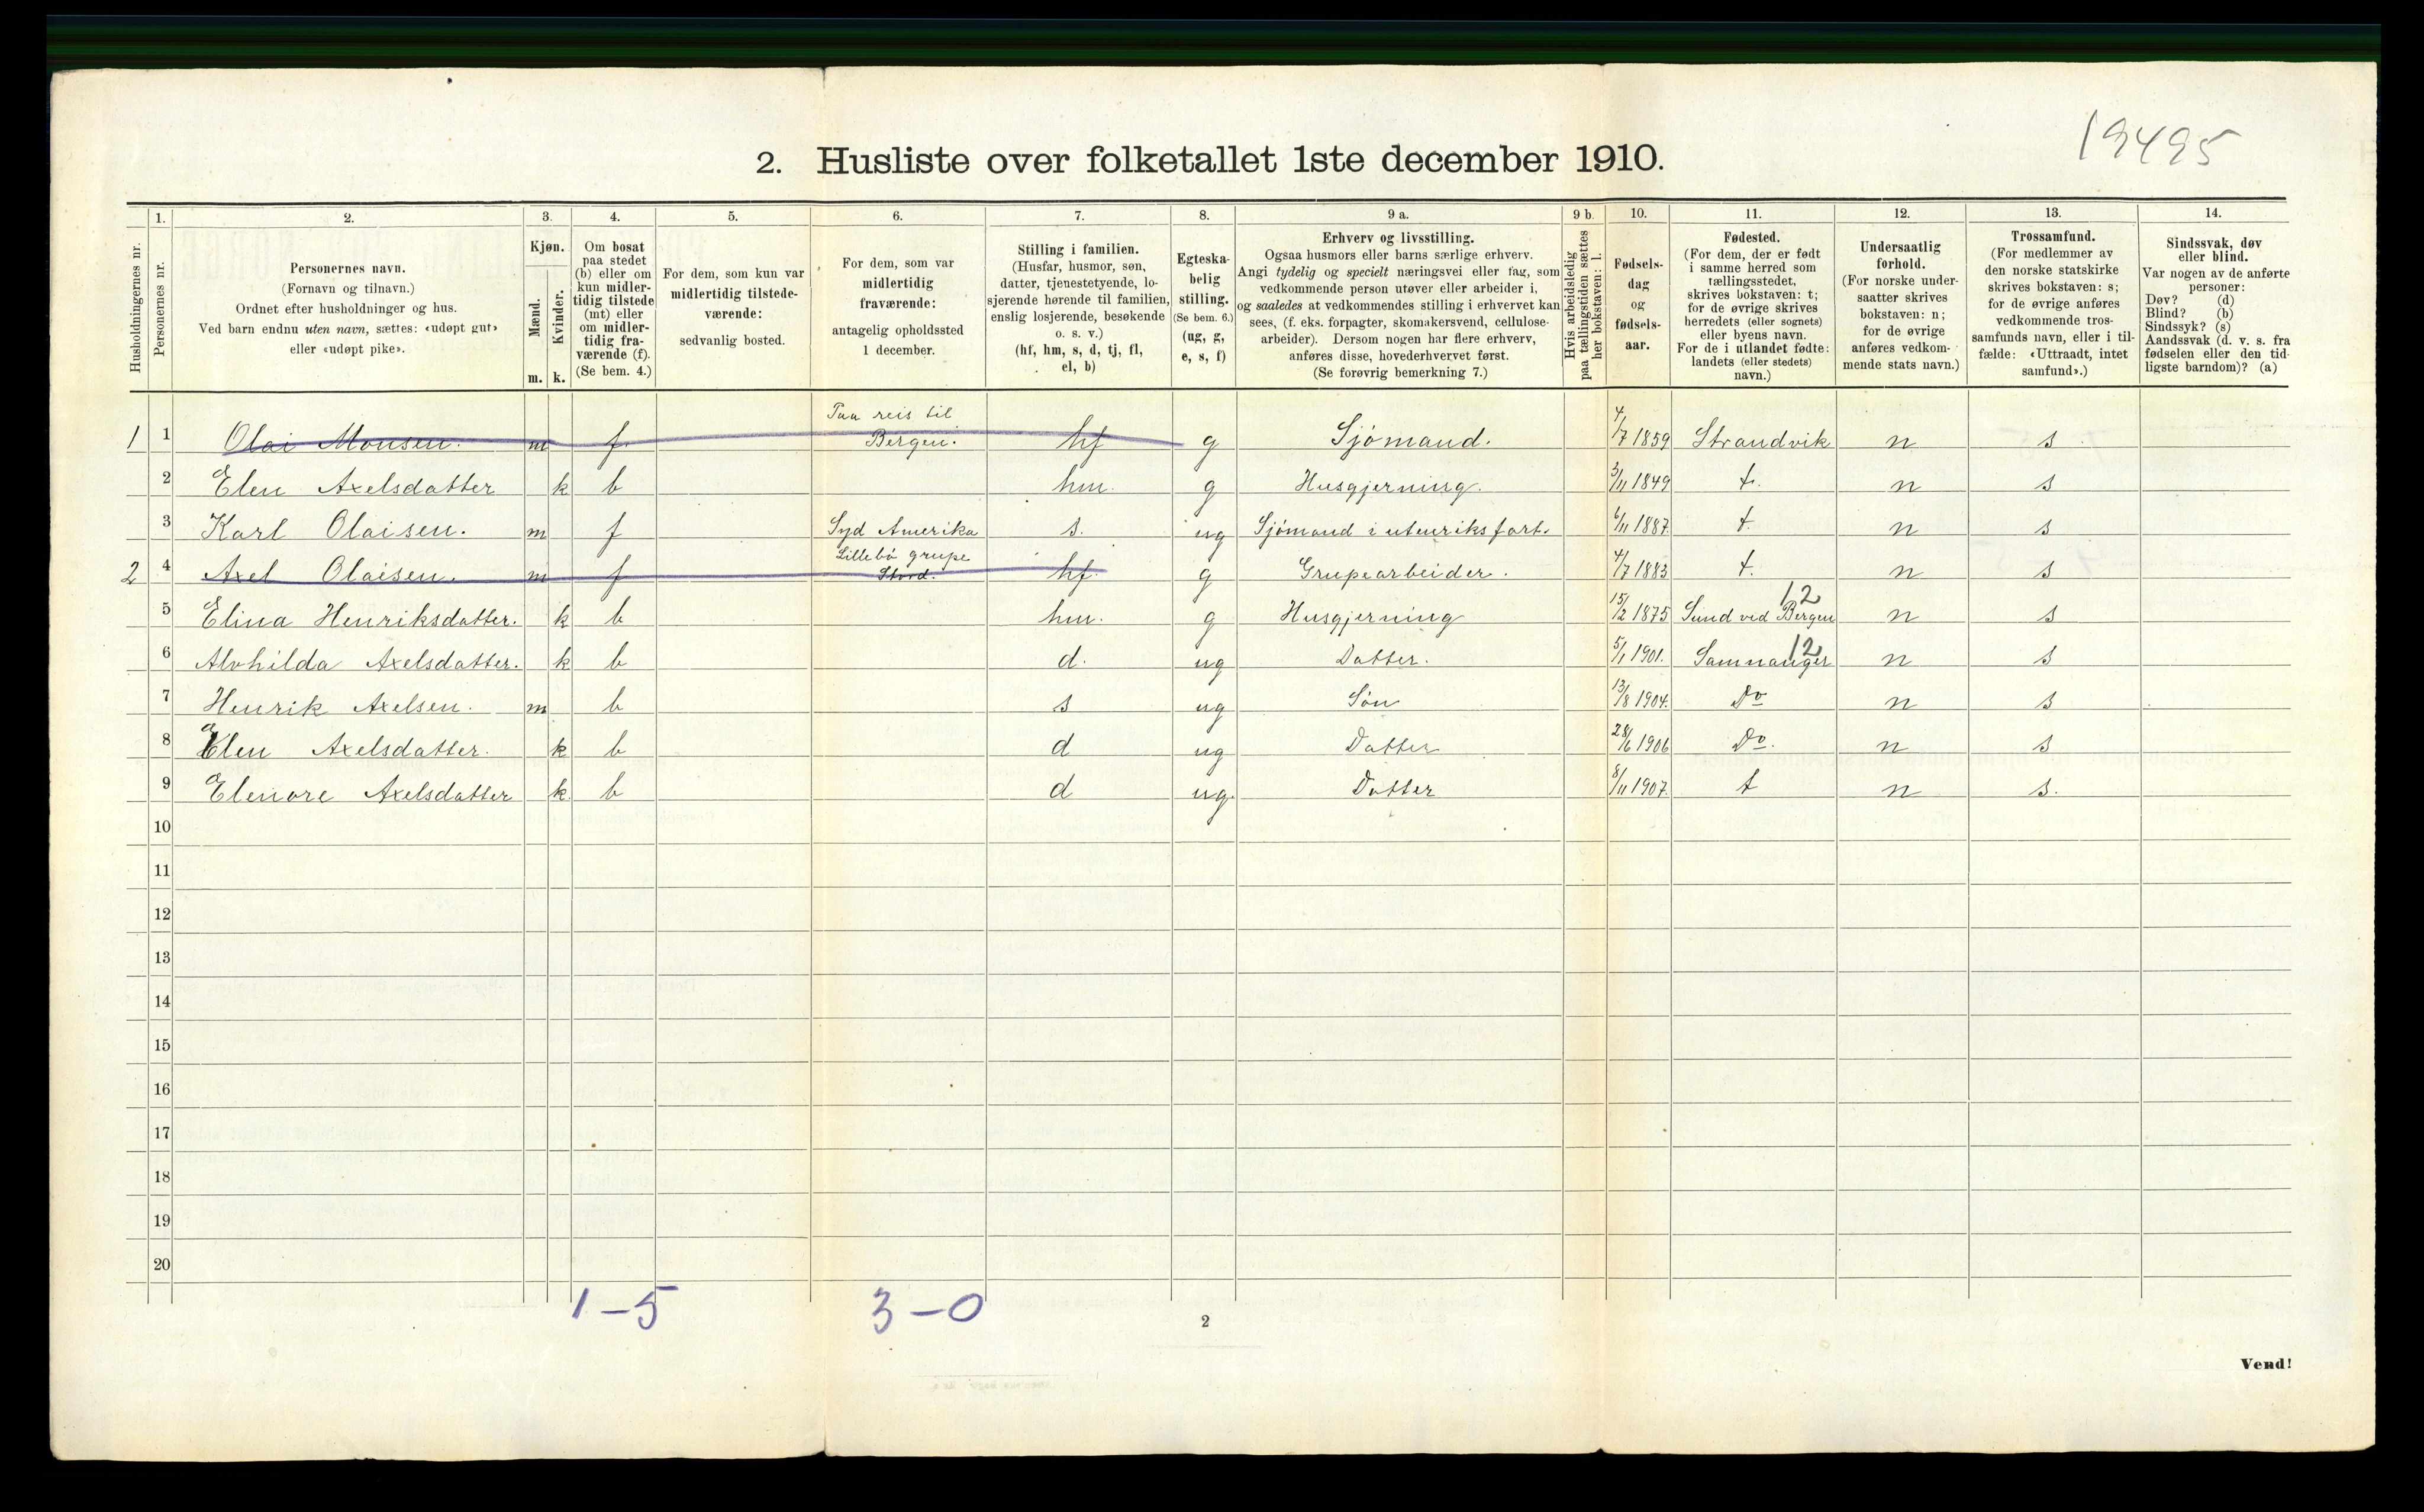 19495
2. Husliste over folketallet 1ste december 1910.
Husholdningernes nr.
1.
Personernes nr.
2.
Personernes navn.
(Fornavn og tilnavn.)
Ordnet efter husholdninger og hus.
Ved barn endnu uten navn, sættes: «udøpt gut»
eller «udøpt pike».
3.
Kjøn.
Mænd.
Kvinder.
m. k.
4.
Om bosat
paa stedet
(b) eller om
kun midler-
tidig tilstede
(mt) eller
om midler-
tidig fra-
værende (f).
(Se bem. 4.)
5.
For dem, som kun var
midlertidig tilstede-
værende:
sedvanlig bosted.
6.
For dem, som var
midlertidig
fraværende:
antagelig opholdssted
1 december.
7.
Stilling i familien.
(Husfar, husmor, søn,
datter, tjenestetyende, lo-
sjerende hørende til familien,
enslig losjerende, besøkende
o. s. v.)
(hf, hm, s, d, tj, fl,
el, b)
8.
Egteska-
belig
stilling.
(Se bem. 6.)
(ug, g,
e, s, f)
9 a.
Erhverv og livsstilling.
Ogsaa husmors eller barns særlige erhverv.
Angi tydelig og specielt næringsvei eller fag, som
vedkommende person utøver eller arbeider i,
og saaledes at vedkommendes stilling i erhvervet kan
sees, (f. eks. forpagter, skomakersvend, cellulose-
arbeider). Dersom nogen har flere erhverv,
anføres disse, hovederhvervet først.
(Se forøvrig bemerkning 7.)
9 b.
Hvis arbeidsledig
paa tællingstiden sættes
her bokstaven: l.
10.
Fødsels-
dag
og
fødsels-
aar.
11.
Fødested.
(For dem, der er født
i samme herred som
tællingsstedet,
skrives bokstaven: t;
for de øvrige skrives
herredets (eller sognets)
eller byens navn.
For de i utlandet fødte:
landets (eller stedets)
navn.)
12.
Undersaatlig
forhold.
(For norske under-
saatter skrives
bokstaven: n;
for de øvrige
anføres vedkom-
mende stats navn.)
13.
Trossamfund.
(For medlemmer av
den norske statskirke
skrives bokstaven: s;
for de øvrige anføres
vedkommende tros-
samfunds navn, eller i til-
fælde: «Uttraadt, intet
samfund».)
14.
Sindssvak, døv
eller blind.
Var nogen av de anførte
personer:
Døv? (d)
Blind? (b)
Sindssyk? (s)
Aandssvak (d. v. s. fra
fødselen eller den tid-
ligste barndom)? (a)
Paa reis til
1 1 Olai Monsen. m f Bergen. hf g Sjømand. 4/7 1859 Strandvik n s
2 Elen Axelsdatter k b hm. g Husgjerning. 3/11 1849 t. n s
3 Karl Olaisen. m f Syd Amerika s. ug Sjømand i utenriksfart. 6/11 1887. t. n s
Lillebø grupe
2 4 Axel Olaisen. m f Stord. hf. g Grupearbeider. 4/7 1883 t. n s
12
5 Elina Henriksdatter. k b hm. g Husgjerning 15/2 1875 Sund ved Bergen n s
12
6 Alvhilda Axelsdatter. k b d. ug Datter. 5/1 1901. Samnanger n s
7 Henrik Axelsen. m b s ug Søn 13/8 1904. Do n s
8 Elen Axelsdatter. k b d ug Datter 28/6 1906 Do. n s
9 Elenore Axelsdatter k b d ug. Datter 8/11 1907. t n s.
10
11
12
13
14
15
16
17
18
19
20
1 – 5 3 – 0
2
Vend!